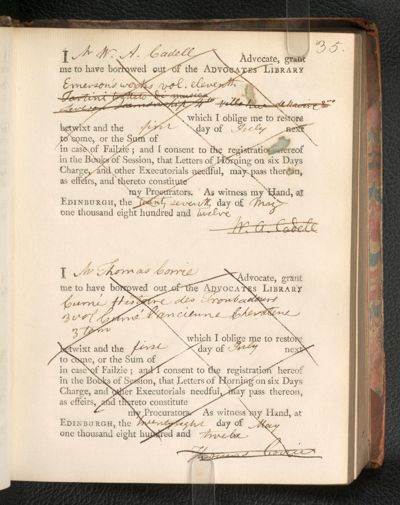 35.
I Mr W. A. Cadell Advocate, grant
me to have borrowed out of the ADVOCATES LIBRARY
Emerson's works vol. eleventh
which I oblige me to restore
betwixt and the first day of July next
to come, or the Sum of
in case of Failzie; and I consent to the registration hereof
in the Books of Session, that Letters of Horning on six Days
Charge, and other Executorials needful, may pass thereon,
as effeirs, and thereto constitute
my Procurators. As witness my Hand, at
EDINBURGH, the twenty seventh day of May
one thousand eight hundred and twelve
W. A. Cadell
I Mr Thomas Corrie Advocate, grant
me to have borrowed out of the ADVOCATES LIBRARY
Histoire des Troubadours
3 vol l'ancienne Chevalerie
3 tom
which I oblige me to restore
betwixt and the first day of July next
to come, or the Sum of
in case of Failzie; and I consent to the registration hereof
in the Books of Session, that Letters of Horning on six Days
Charge, and other Executorials needful, may pass thereon,
as effeirs, and thereto constitute
my Procurators. As witness my Hand, at
EDINBURGH, the twenty eight day of May
one thousand eight hundred and twelve
Thomas Corrie